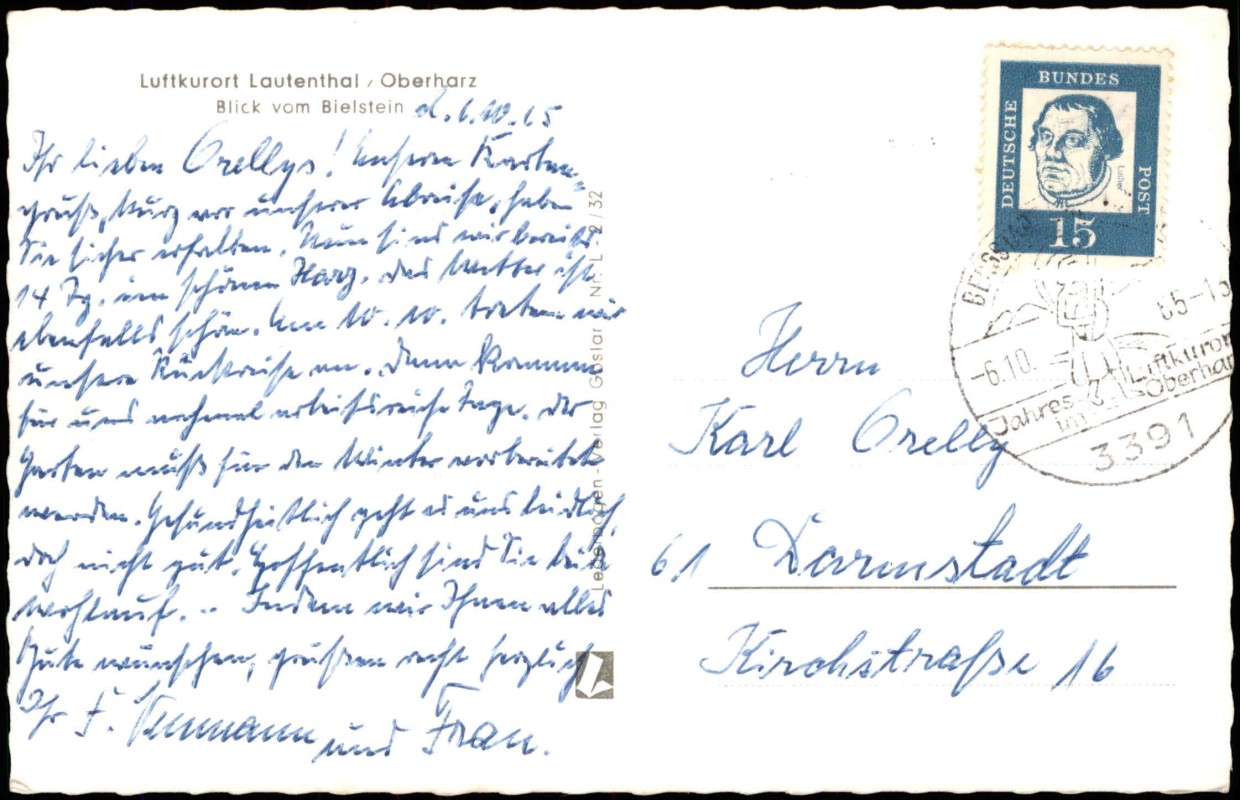 Luftkurort Lautenthal / Oberharz
Blick vom Bielstein
d. 6.10.65
Ihr lieben Orellys! Unseren Karten-
gruß, kurz vor unserer Abreise, haben
Sie sicher erhalten. Nun sind wir bereits
14 Tg. im schönen Harz. das Wetter ist
ebenfalls schön. Am 10. 10. treten wir
unsere Rückreise an. Dann kommen
für uns nochmal arbeitsreiche Tage. Der
Garten muß für den Winter vorbereitet
werden. Gesundheitlich geht es uns leidlich,
doch nicht gut. Hoffentlich sind Sie beide
wohlauf. - Indem wir Ihnen alles
Gute wünschen, grüßen recht herzlich
Ihr F. und Frau.
Leperbogen-Verlag Goslar Nr. L 2/32
DEUTSCHE BUNDES POST
Luther
15
-6.10. 65-1
Jahres-
im
Luftkuror
Oberha
3391
Herrn
Karl Orelly
61 Darmstadt
Kirchstraße 16